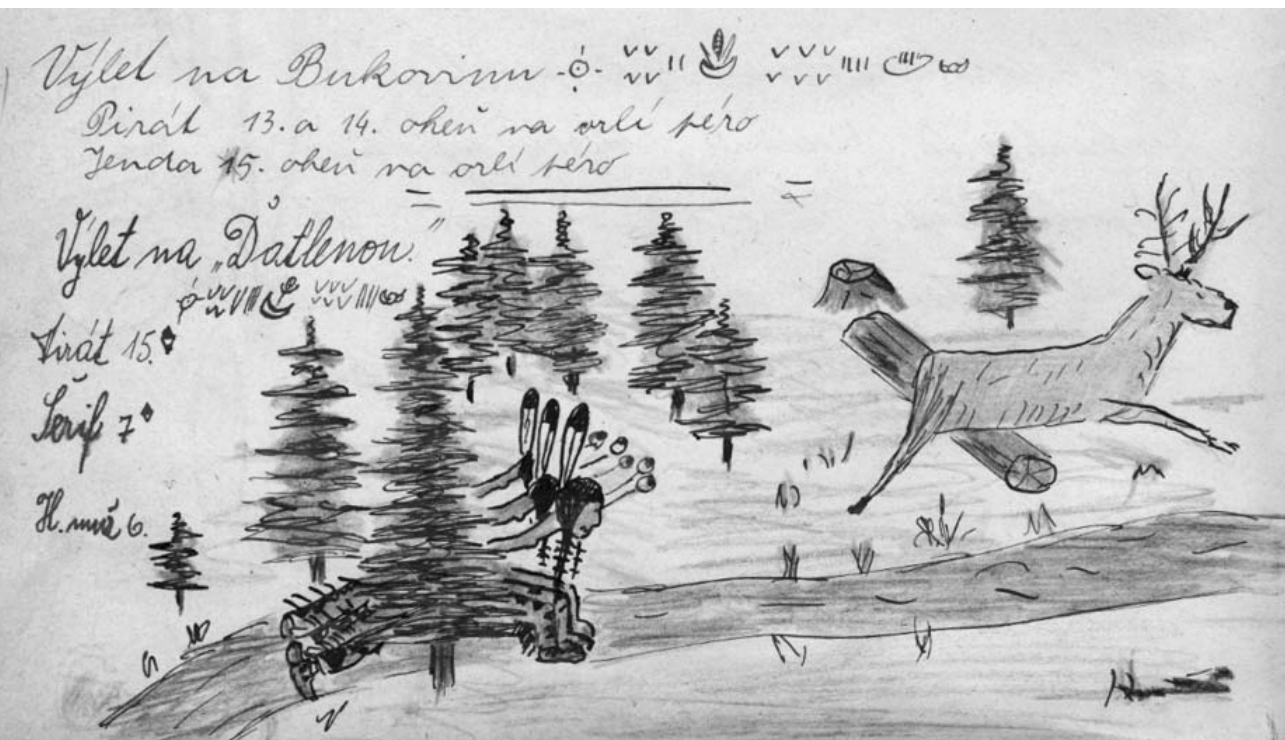 Výlet na Bukovinu
Pirát 13. a 14. oheň na orlí péro
Jenda 15. oheň na orlí péro
Výlet na „Datlenou."
Pirát 15.
Šerif 7
H. muž 6.